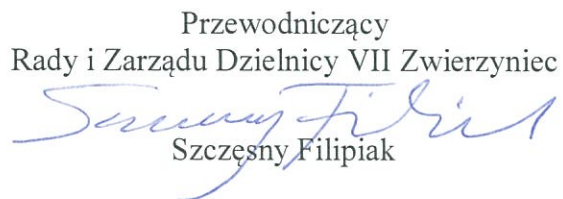 Przewodniczący
Rady i Zarządu Dzielnicy VII Zwierzyniec
Szczęsny Filipiak
Szczęsny Filipiak